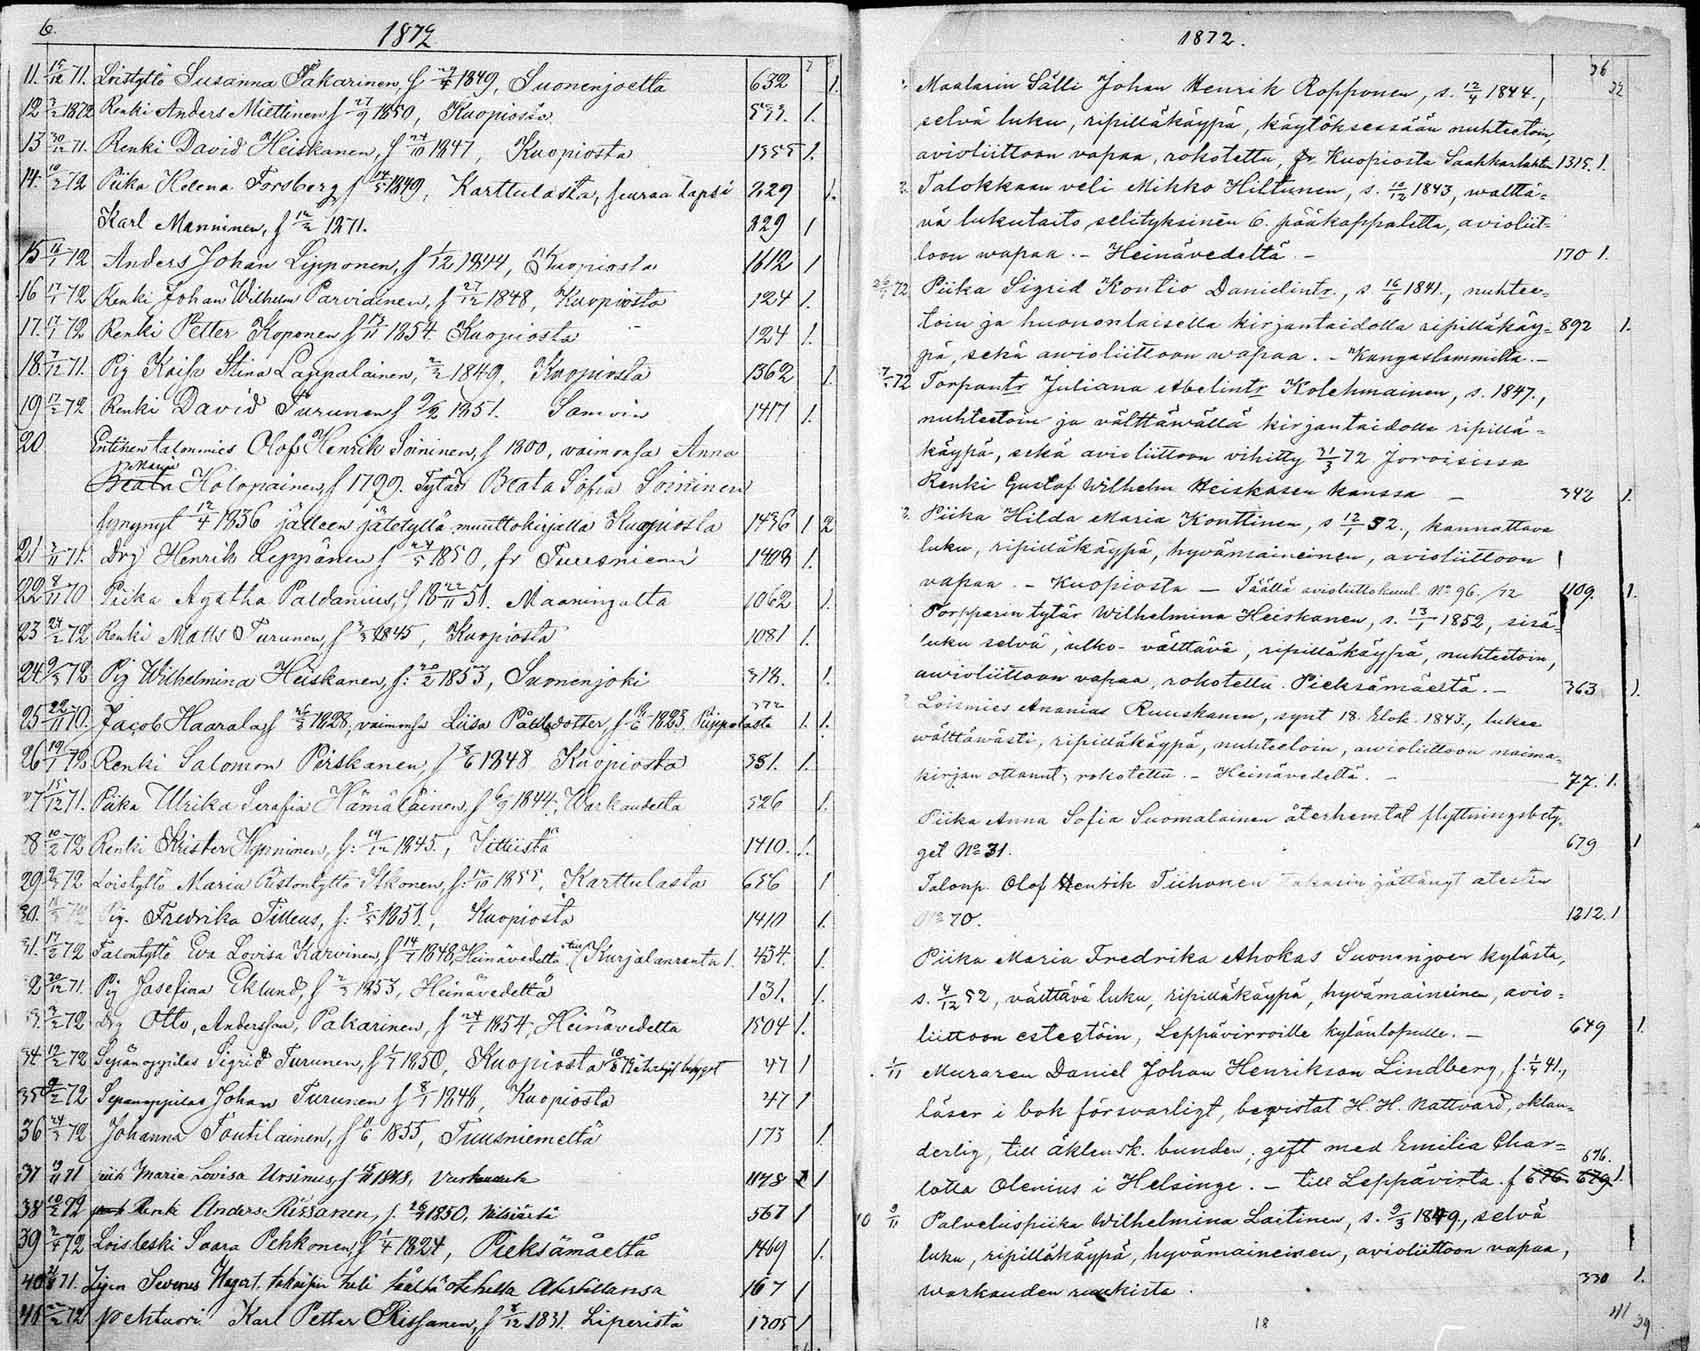 6.
1872
11. 15/12 71. Loistyttö Susanna Pakarinen, f 1849, Suonenjoelta 632 1.
12 1872 Renki Anders Miettinen f 27/9 1850, Kuopiosta 533. 1.
13 30/12 71. Renki David Heiskanen, f 24/10 1847, Kuopiosta 1355 1.
14. 72 Piika Helena Forsberg f 14/5 1849, Karttulasta, seuraa lapsi 829 1.
Karl Manninen, f 1871. 829 1
15 72 Anders Johan Lipponen, f 1/12 1844, Kuopiosta 1612 1
16 17/1 72 Renki Johan Wilhelm Parviainen, f 27/12 1848, Kuopiosta 124 1.
17. 17/1 72 Renki Petter Koponen f 13/11 1854. Kuopiosta 124 1.
18. 7/12 71. Pig Kaisa Stina Lappalainen, 1849, Kuopiosta 1362 1.
19 72 Renki David Turunen f 9/2 1851. 1417 1.
20 Entinen talonmies Olof Henrik Soininen, f 1800, vaimonsa Anna
Maria
Beata Holopainen, f 1799. Tytär Beata Sofia Soininen
synnynyt 12/4 1836 jälleen jätetyllä muuttokirjalla Kuopiosta 1436 1 2
21 71. Drg Henrik Leppänen f 1850, fr Tuusniemi 1408 1.
22 8/11 70 Piika Agatha Paldanius, f 18 22/11 51. Maaningalta 1062 1.
23 24/2 72 Renki Matts Turunen, f 1845, Kuopiosta 1081 1.
24 72 Pig Wilhelmina Heiskanen, f: 20/2 1853, Suonenjoki 318. 1.
25 22/11 70. Jacob Haarala f 1828, vaimonsa Liisa f 1823 1. 1.
26 19/1 72 Renki Salomon Pirskanen, f 8/6 1848 Kuopiosta 351. 1.
7 15/12 71. Piika Ulrika Serafia Hämäläinen, f 6/9 1844., Warkaudesta 526 1.
8 10/2 72 Renki Krister Hynninen, f: 19/12 1845., 1410. 1.
29 72 Loistyttö Maria Ristontyttö Itkonen, f: 1855, Karttulasta 656 1
30. 72 Pig. Fredrika Tilleus, f: 1851., Kuopiosta 1410 1.
31. 17/2 72 Talontyttö Eva Lovisa Karvinen, f 14/7 1848, Heinävedeltä Kurjalanranta 1. 434. 1.
2 20/12 71. Pig Josefina Eklund, f 1853, Heinävedeltä 131. 1.
72 Drg Otto, Andersson, Pakarinen, f 24/1 1854, Heinävedeltä 1504 1.
34 12/2 72 Sepänoppilas Sigrid Turunen, f 1/7 1850, Kuopiosta 47 1
35 72 Sepanoppilas Johan Turunen f 8/1 1848, Kuopiosta 47 1
36 24/3 72 Johanna Toutilainen, f 1855, Tuusniemeltä 173 1.
37 71 Maria Lovisa Ursinus, f 1848, Varkaudesta 1178 1
38 10/2 72 Renk Anders Rissanen, 1850, Nilsiästä 567 1
39 2/4 72 Loisleski Saara Pehkonen, f 1/4 1824, Pieksämäeltä 1469 1.
40 71. 167 1
41 72 Karl Petter Rissanen, f 8/12 1831. Liperistä 1305 1
1872.
36
32
Maalarin Sälli Johan Henrik Ropponen, s. 12/4 1844.,
selvä luku, ripilläkäypä, käytöksessään nuhteetoin,
avioliittoon vapaa, rokotettu, fr. Kuopiosta 1315. 1.
2. Talokkaan veli Mikko Hiltunen, s. 10/12 1843, walttä-
vä lukutaito selityksineen 6. pääkappaletta, avioliit-
toon wapaa. - Heinävedeltä - 170 1.
72 Piika Sigrid Kontio Danielintr, s 16/6 1841., nuhtee-
toin ja huononlaisella kirjantaidolla ripilläkäy- 892 1.
pä, sekä avioliittoon wapaa. - Kangaslammilta. -
72 Torpantr Juliana Abelintr Kolehmainen, s. 1847.,
nuhteetoin ja välttäwällä kirjantaidolla ripillä-
käypä, sekä avioliittoon vihitty 31/3 72 Joroisissa
Renki Gustaf Wilhelm Heiskasen kanssa - 342 1.
2. Piika Hilda Maria Konttinen, s 12/1 52., kannattava
luku, ripilläkäypä, hyvämaineinen, avioliittoon
vapaa. - Kuopiosta - Täällä aviolittokuul. No 96./72 1109. 1.
Torpparin tytär Wilhelmina Heiskanen, s. 13/1 1852, sisä-
luku selvä, ulko- välttävä, ripilläkäypä, nuhteetoin,
awioliittoon vapaa, rokotettu. Pieksämäeltä. - 363 1.
Loismies Ananias Ruuskanen, synt 18. Elok. 1843., lukee
wälttäwästi, ripilläkäypä, nuhteetoin, awioliittoon naima-
kirjan ottanut, rokotettu. - Heinävedeltä. - 77. 1.
Piika Anna Sofia Suomalainen återhemtat flyttningsbety-
get No 31. 679 1
Talonp. Olof Henrik Tiihonen takasin jättänyt atestin
No 70. 1212. 1
Piika Maria Fredrika Ahokas Suonenjoen kylästä,
s. 4/12 52, välttävä luku, ripilläkäypä, hyvämaineinen, avio-
liittoon esteetöin, Leppävirroille kylänlopulle. - 649 1.
1/11 Muraren Daniel Johan Henrikson Lindberg, f. 1/4 41.,
läser i bok försvarligt, bevistat H. H. Nattvard, oklan-
derlig, till äktensk. bunden, gift med Emilia Char- 676.
lotta Olenius i Helsinge. - till Leppävirta. f 676 679 1
10 9/11 Palveluspiika Wilhelmina Laitinen, s. 9/3 1849., selvä
luku, ripilläkäypä, hyvämaineinen, avioliittoon vapaa,
warkauden ruukista. 330 1.
18
41 39